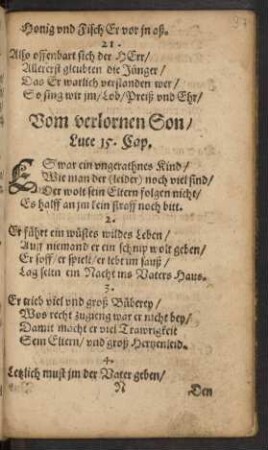 Honig vnd Fisch Er vor jn aß.
21.
Also offenbart sich der HErr/
Allererst gleubten die Jünger/
Das Er warlich verstanden wer/
So sing wir jm/ Lob/ Preiß vnd Ehr/
Vom verlornen Son/
Luce 15. Cap.
ES war ein vngerathnes Kind/
Wie man der (leider) noch viel find/
Der wolt sein Eltern folgen nicht/
Es halff an jm kein straff noch bitt.
2.
Er führt ein wüstes wildes Leben/
Auff niemand er ein schnip wolt geben/
Er soff/ er spielt/ er lebt im sauß/
Lag selten ein Nacht ins Vaters Haus.
3.
Er trieb viel vnd groß Büberey/
Wos recht zugieng war er nicht bey/
Damit macht er viel Trawrigkeit
Sein Eltern/ vnd groß Hertzenleid.
4.
Letzlich must jm der Vater geben/
N Den